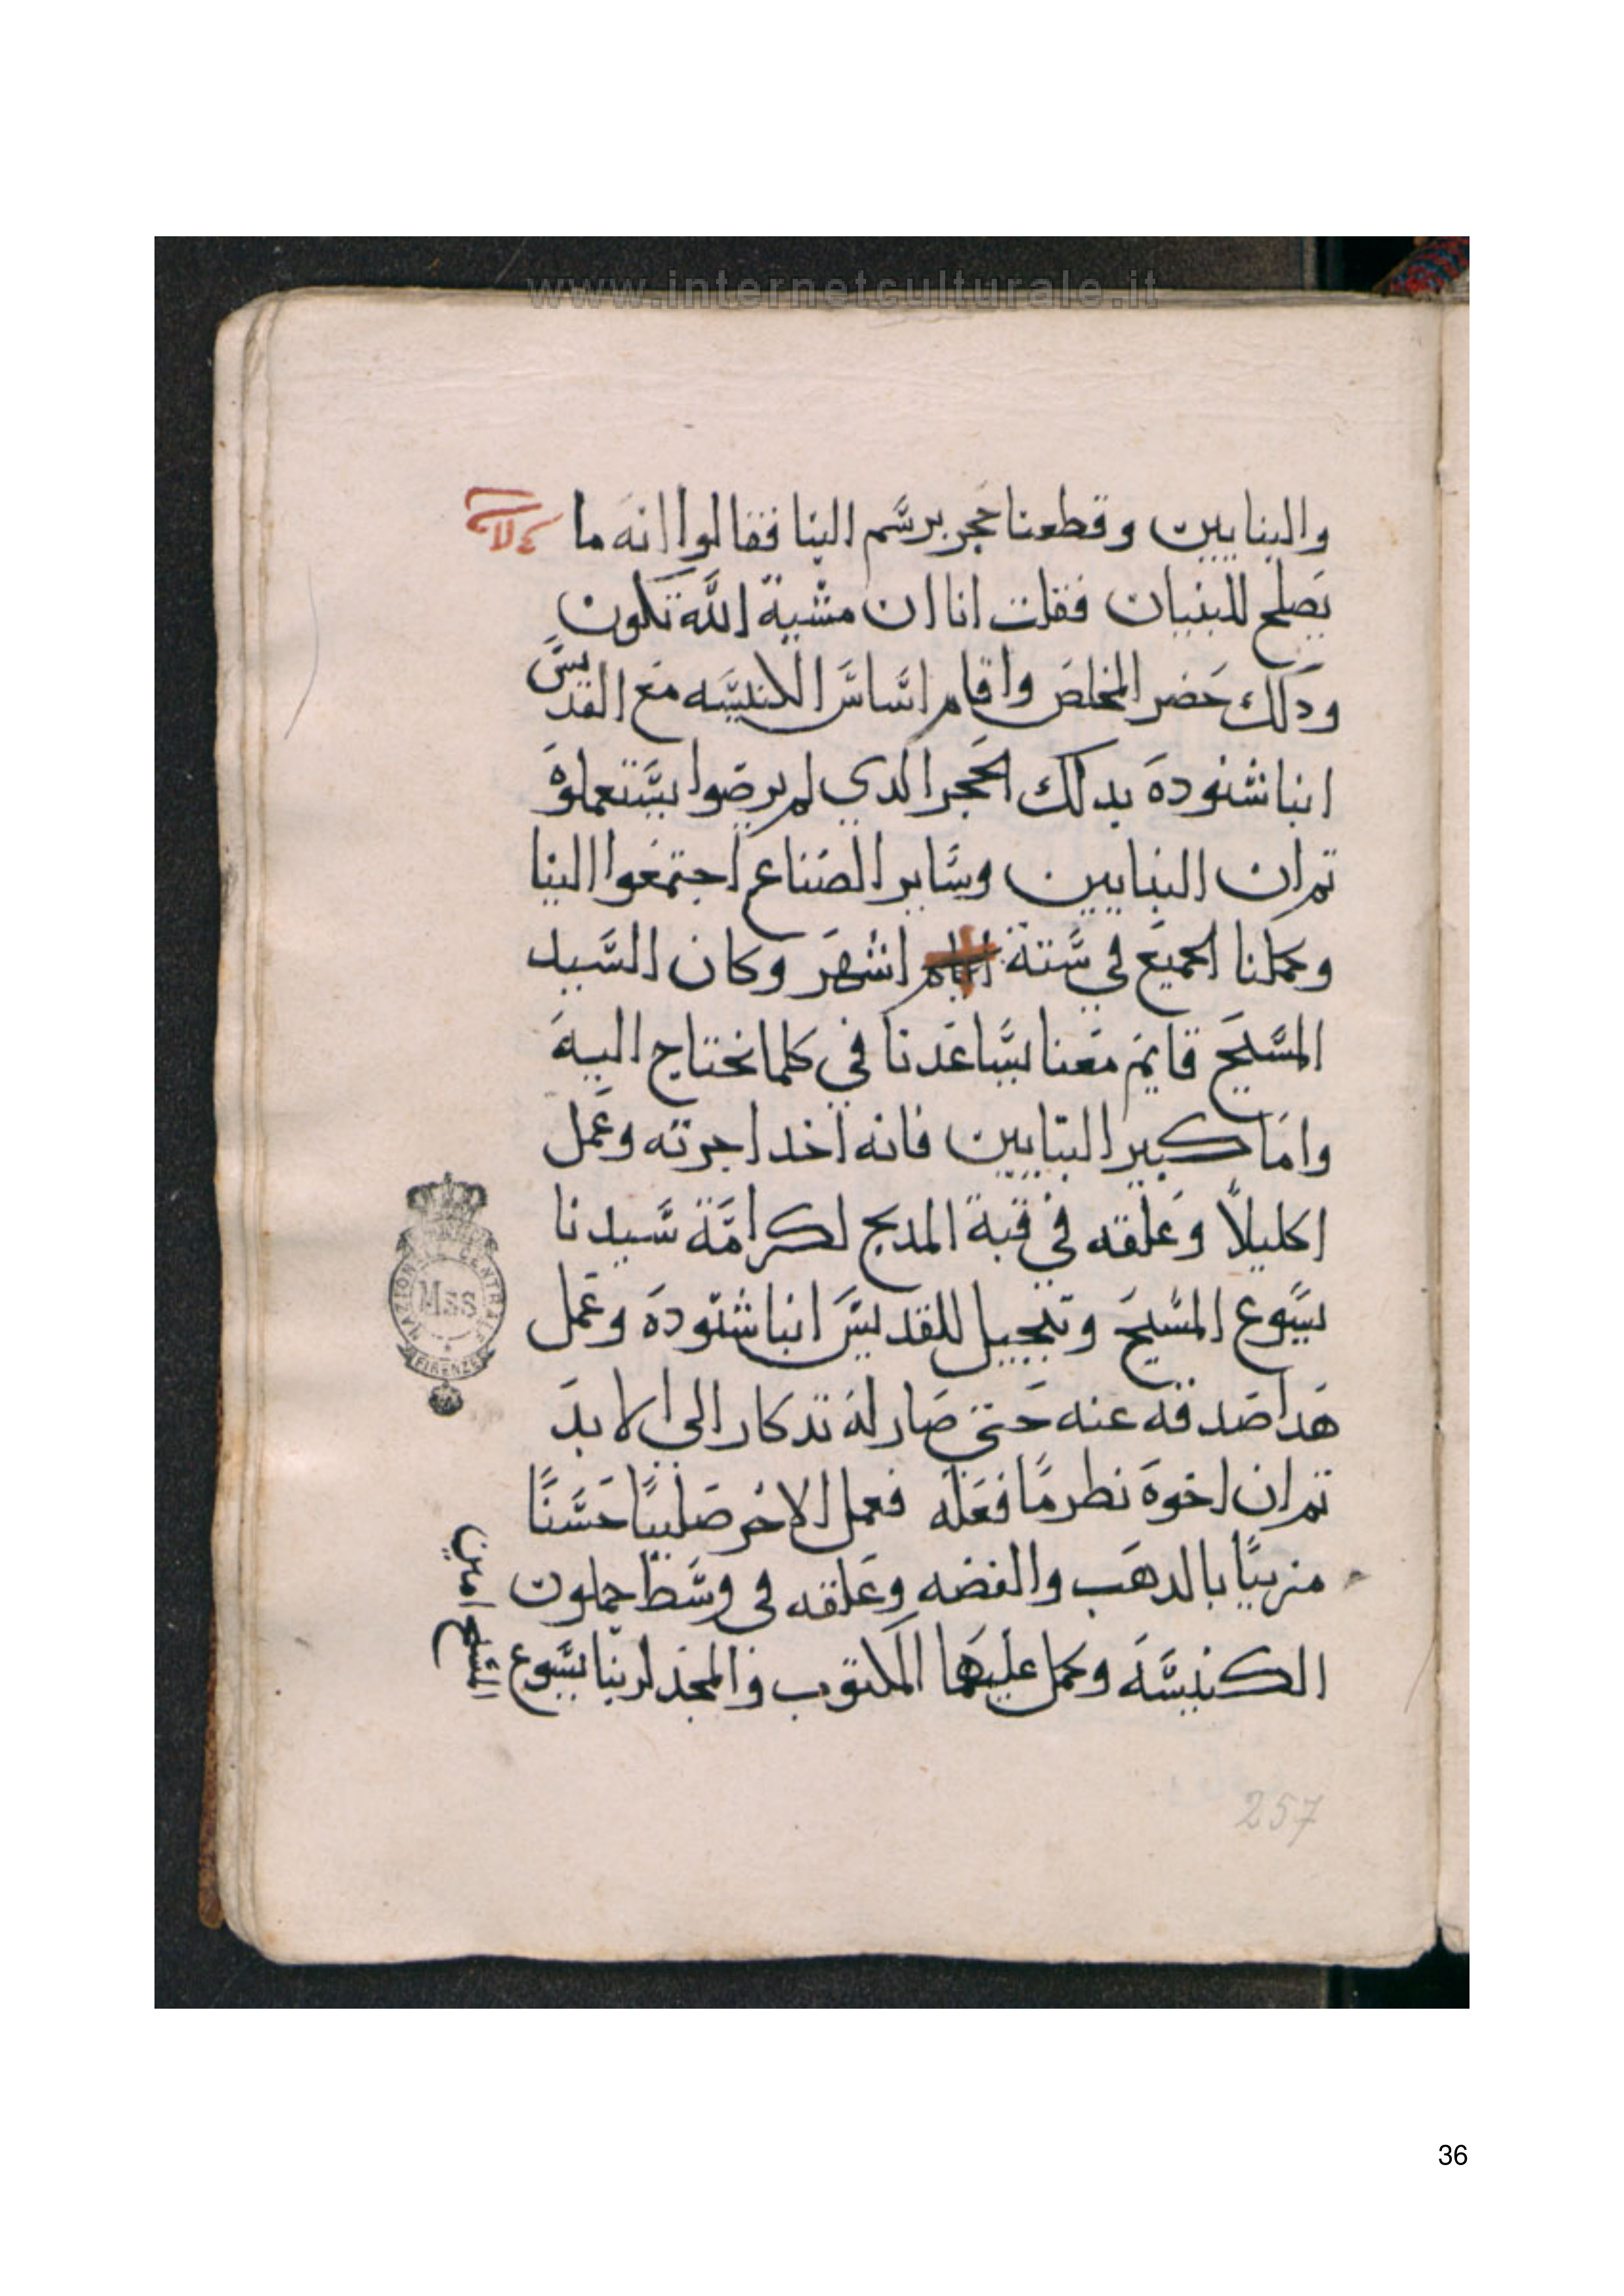 www.internetculturale.it
والبنايين وقطعنا حجر برسم البنا فقالوا انه ما
يصلح للبنيان فقلت انا ان مشية الله تكون
ودلك حضر المخلص واقام اساس الكنيسه مع القديس
انبا شنوده بدلك الحجر الدي لم يرضوا يستعملوه
تم ان البنايين وساير الصناع اجتمعوا الينا
وكملنا الجميع في ستة ايام اشهر وكان السيد
المسيح قايم معنا يساعدنا في كلما نحتاج اليه
واما كبير البنايين فانه اخد اجرته وعمل
اكليلاً وعلقه في قبة المدبح لكرامة سيدنا
يسوع المسيح وتبجيل للقديس انبا شنوده وعمل
هدا صدقه عنه حتى صار له تدكار الي الابد
تم ان اخوه نظر ما فعله فعمل الاخر صليبًا حسنًا
مزينًا بالدهب والفضه وعلقه في وسط جملون
الكنيسه وكمل عليهما المكتوب والمجد لربنا يسوع
المسيح امين
NAZIONALE CENTRALE
Mss
FIRENZE
257
36